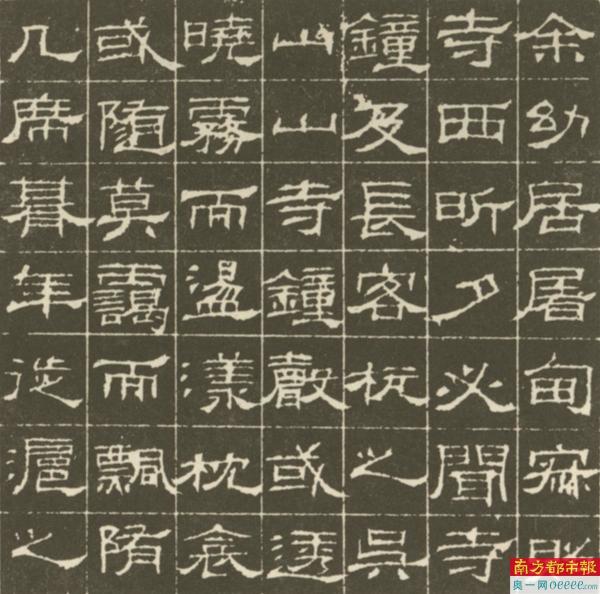 余幼居屠甸寂照
寺西昕夕必聞寺
鐘及長客杭之吳
山山寺鐘聲或透
曉霧而盪漾枕衾
或隨莫靄而飄墮
几席暮年徙滬之
南方都市報
奥一网oeeee.com